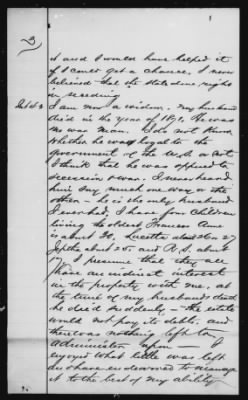 3
it and I would have helped it
if I could get a chance, I never
believed that the state done right
in seceding
I am now a widow, my husband
died in the year of 1871. He was
no was man. I do not know
whether he was loyal to the
government of the U.S. or not
I think that he was opposed to
secession or war. I never heard
him say much one way or the
other - he is the only husband
I ever had, I have four children
living the oldest Frances Ann
is about 30, Lucetta about 27
Jeptha about 25 and R.S. about
I presume that they all
have an indirect interest
in the property with me, at
the time of my husbands death
he died suddenly - the estate
would not pay its debts, and
there was nothing left to
Administer upon - I
enjoyed what little was left
and have endeavored to manage
it to the best of my ability